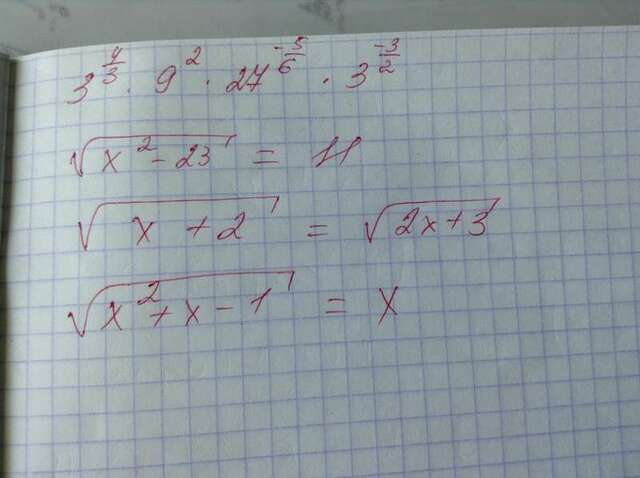 3^{4/3} · 9^2 · 27^{-5/6} · 3^{-3/2}
√(x^2 - 23) = 11
√(x + 2) = √(2x + 3)
√(x^2 + x - 1) = x